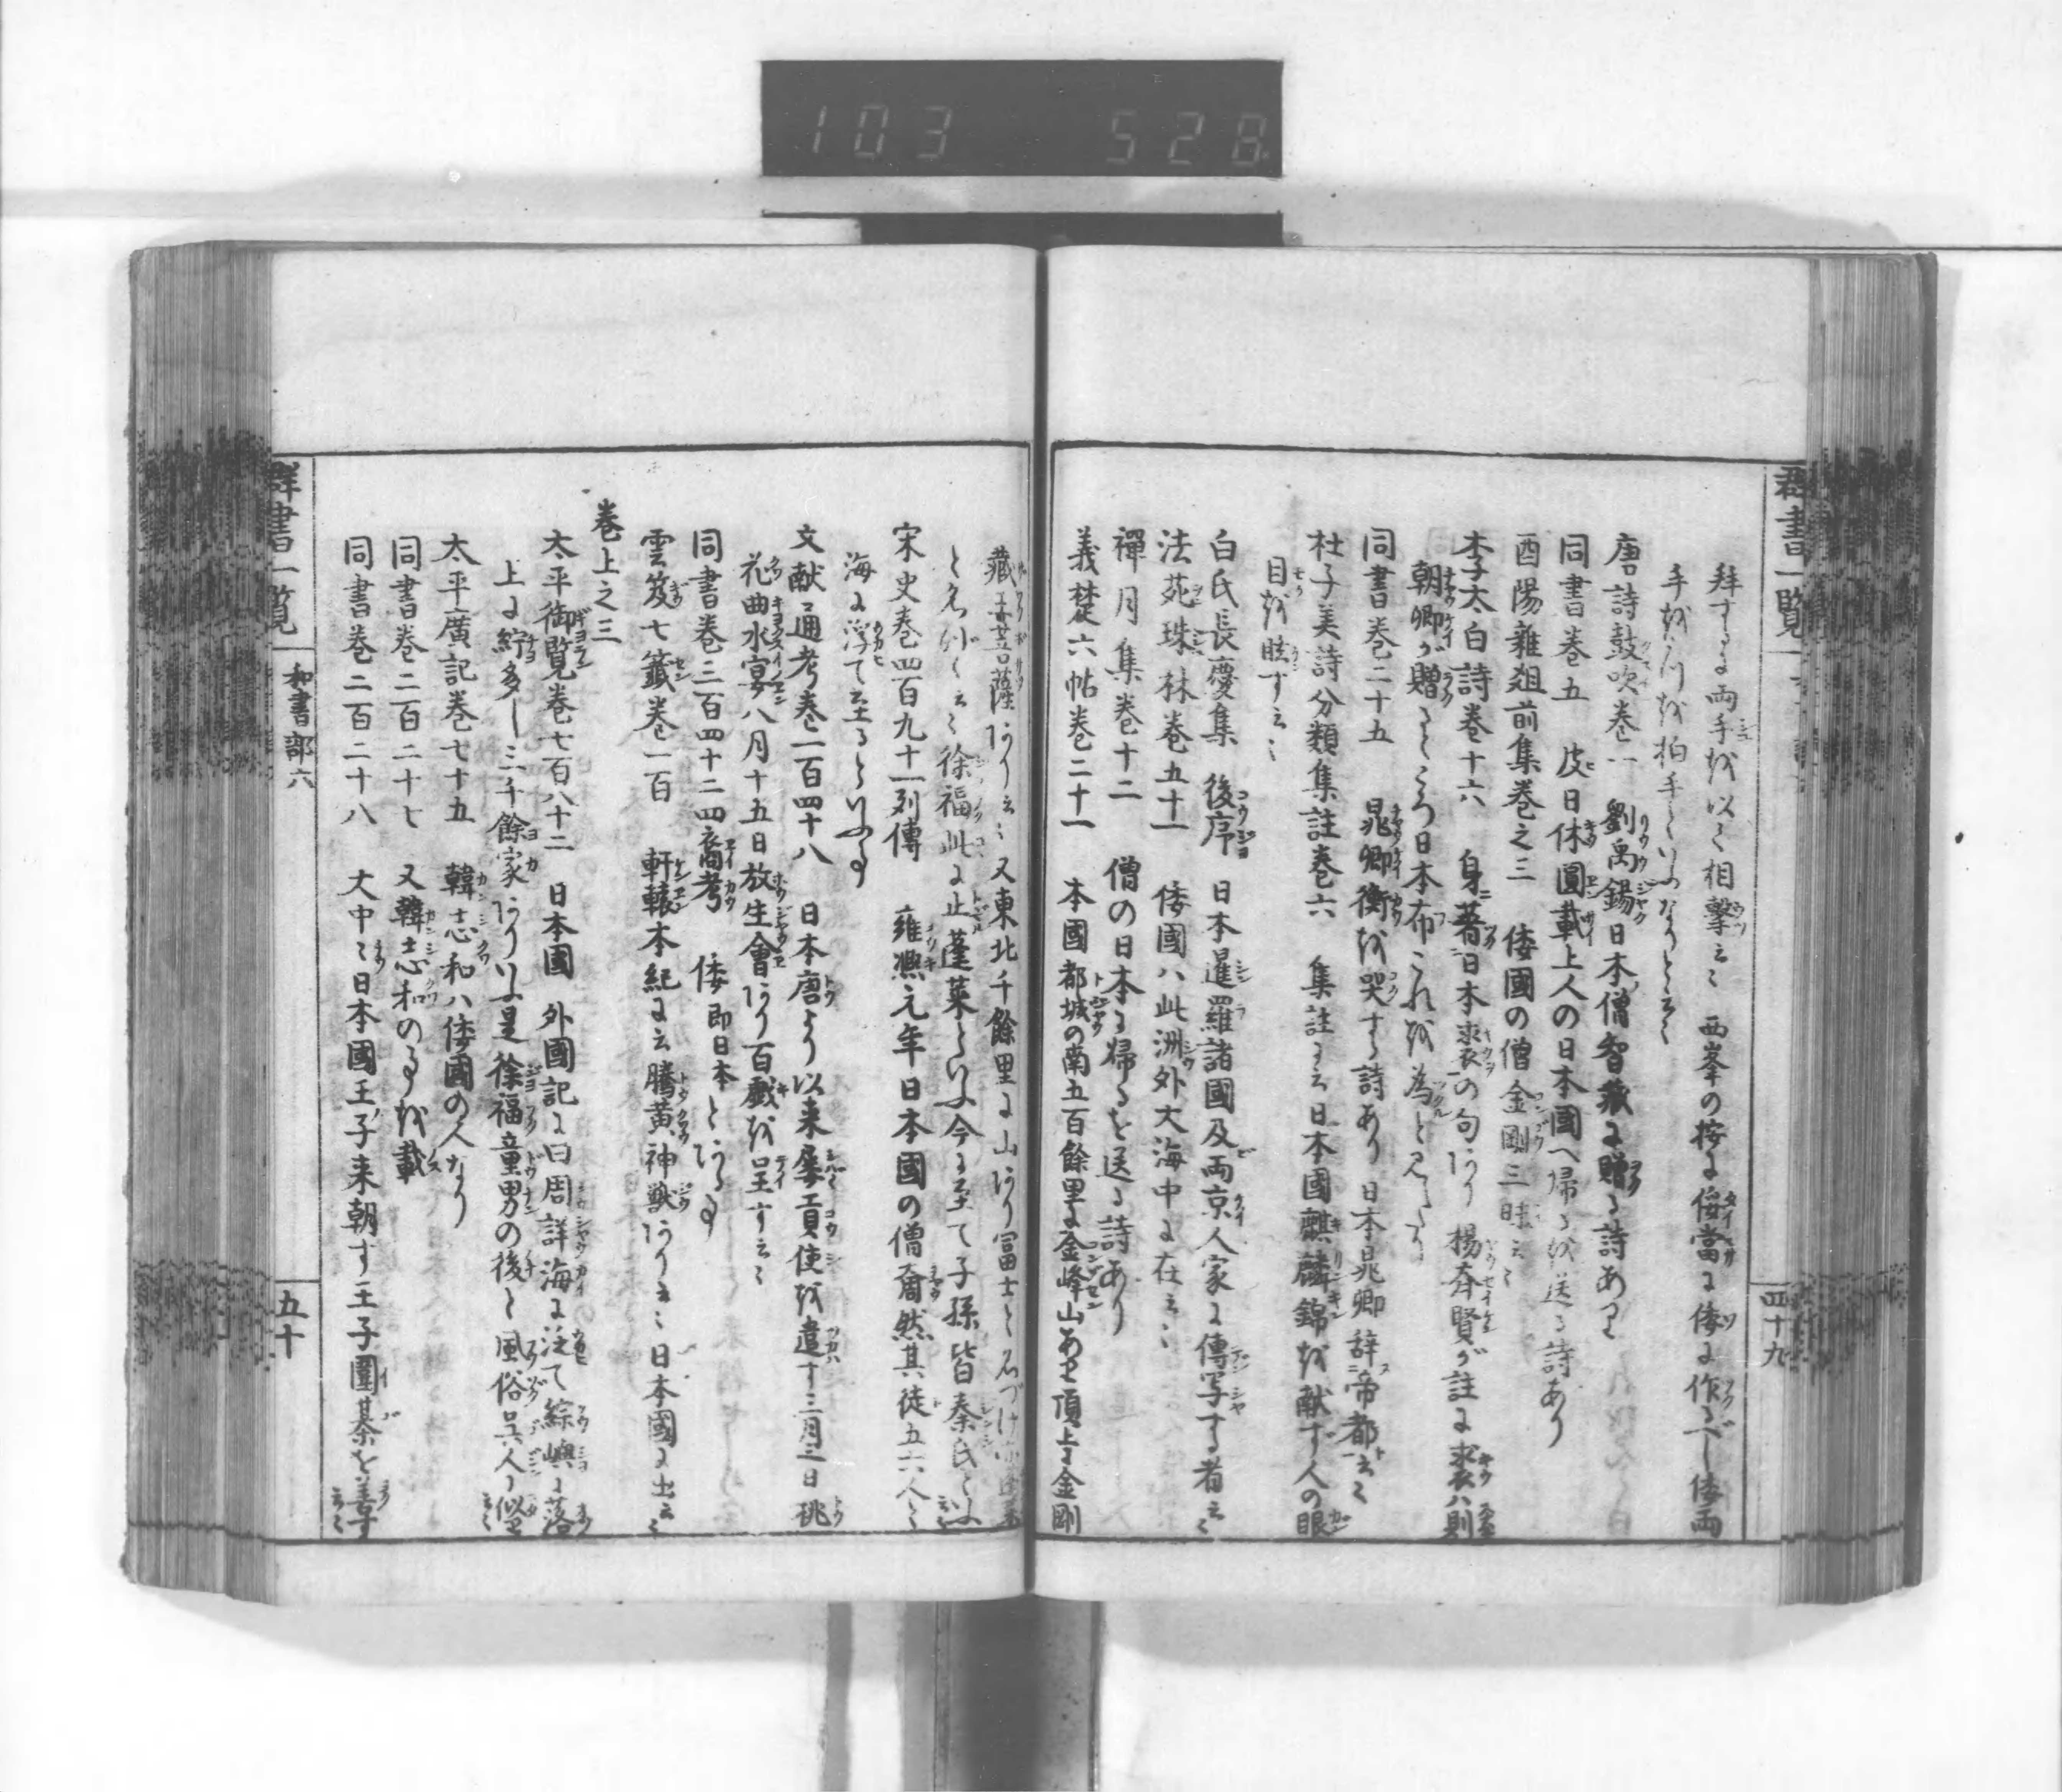 103 528
群書一覧
四十九
拜するに両手を以て相撃云々 西峯の按に倭當に倭に作るべし倭両
手を以拍手といふなりと云々
唐詩鼓吹巻一 劉禹錫日本僧智藏に贈る詩あり
同書巻五 皮日休圓載上人の日本國へ帰るを送る詩あり
酉陽雜爼前集巻之三 倭國の僧金剛三昧云々
李太白詩巻十六 身著日本裘の句あり 楊齊賢が註に裘ハ則
朝卿が贈るところ日本布これを為ると見えたり
同書巻二十五 晁卿衡を哭する詩あり 日本晁卿辞帝都云々
杜子美詩分類集註巻六 集註に云日本國麒麟錦を献ず人の眼
目を眩す云々
白氏長慶集 後序 日本暹羅諸國及両京人家に傳写する者云々
法苑珠林巻五十一 倭國ハ此洲外大海中に在云々
禪月集巻十二 僧の日本に帰るを送る詩あり
義楚六帖巻二十一 本國都城の南五百餘里に金峰山あり頂上に金剛
藏王菩薩あり云々又東北千餘里に山あり冨士と名づけ亦蓬莱
と名づく云々徐福此に止蓬莱といふ今に至て子孫皆秦氏といふ云々
宋史巻四百九十一列傳 雍熙元年日本國の僧奝然其徒五六人と
海に浮て至るといふ事
文献通考巻一百四十八 日本唐より以来屡貢使を遣す三月三日桃
花曲水宴八月十五日放生會あり百戲を呈す云々
同書巻三百四十二四裔考 倭即日本とある事
雲笈七籤巻一百 軒轅本紀に云騰黄神獸あり云々日本國に出云々
巻上之三
太平御覧巻七百八十二 日本國 外國記に曰周詳海に泛て綜嶼に落
上に紵多し三千餘家ありいふ是徐福童男の後と風俗呉人に似せ云々
太平廣記巻七十五 韓志和ハ倭國の人なり
同書巻二百二十七 又韓志和の事を載
同書巻二百二十八 大中々日本國王子来朝す王子圍棊を善す云々
群書一覧
和書部六
五十